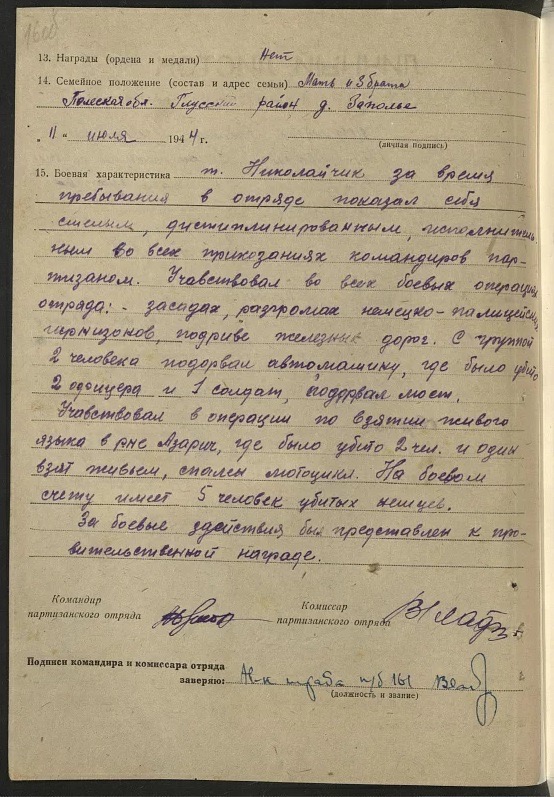 13. Награды (ордена и медали) Нет
14. Семейное положение (состав и адрес семьи) Мать и 3 брата
Полеская обл. Глусский район д. Заполье
„ 11 " июля 1944 г.
(личная подпись)
15. Боевая характеристика т. Николайчик за время
пребывания в отряде показал себя
смелым, дистиплинированным, исполнитель-
ным во всех приказаниях командиров пар-
тизаном. Учавствовал во всех боевых операциях
отряда: - засадах, разгромах немецко-палицейских
гарнизонов, подриве железних дорог. С групой
2 человека подорвал автомашину, где было убито
2 офицера и 1 солдат, подорвал мост.
Учавствовал в операции по взятии живого
языка в р-не Азарич, где было убито 2 чел. и один
взят живьем, спален мотоцикл. На боевом
счету имеет 5 человек убитых немцев.
За боевые действия был представлен к пра-
вительственной награде.
Командир
партизанского отряда
Комиссар
партизанского отряда
Подписи командира и комиссара отряда
заверяю: Н-к штаба п/б 161
(должность и звание)